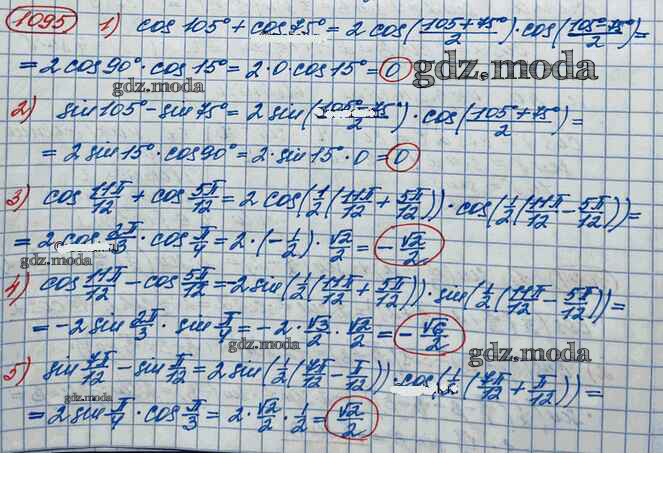 1095 1) cos 105° + cos 75° = 2 cos(105°+75°/2) · cos(105°-75°/2) =
= 2 cos 90° · cos 15° = 2 · 0 · cos 15° = 0 gdz.moda
gdz.moda
2) sin 105° - sin 75° = 2 sin(105°-75°/2) · cos(105°+75°/2) =
= 2 sin 15° · cos 90° = 2 · sin 15° · 0 = 0
3) cos 11π/12 + cos 5π/12 = 2 cos(1/2(11π/12 + 5π/12)) · cos(1/2(11π/12 - 5π/12)) =
= 2 cos 2π/3 · cos π/4 = 2 · (-1/2) · √2/2 = -√2/2
gdz.moda
4) cos 11π/12 - cos 5π/12 = -2 sin(1/2(11π/12 + 5π/12)) · sin(1/2(11π/12 - 5π/12)) =
= -2 sin 2π/3 · sin π/4 = -2 · √3/2 · √2/2 = -√6/2
gdz.moda gdz.moda
5) sin 7π/12 - sin π/12 = 2 sin(1/2(7π/12 - π/12)) · cos(1/2(7π/12 + π/12)) =
gdz.moda
= 2 sin π/4 · cos π/3 = 2 · √2/2 · 1/2 = √2/2
gdz.moda